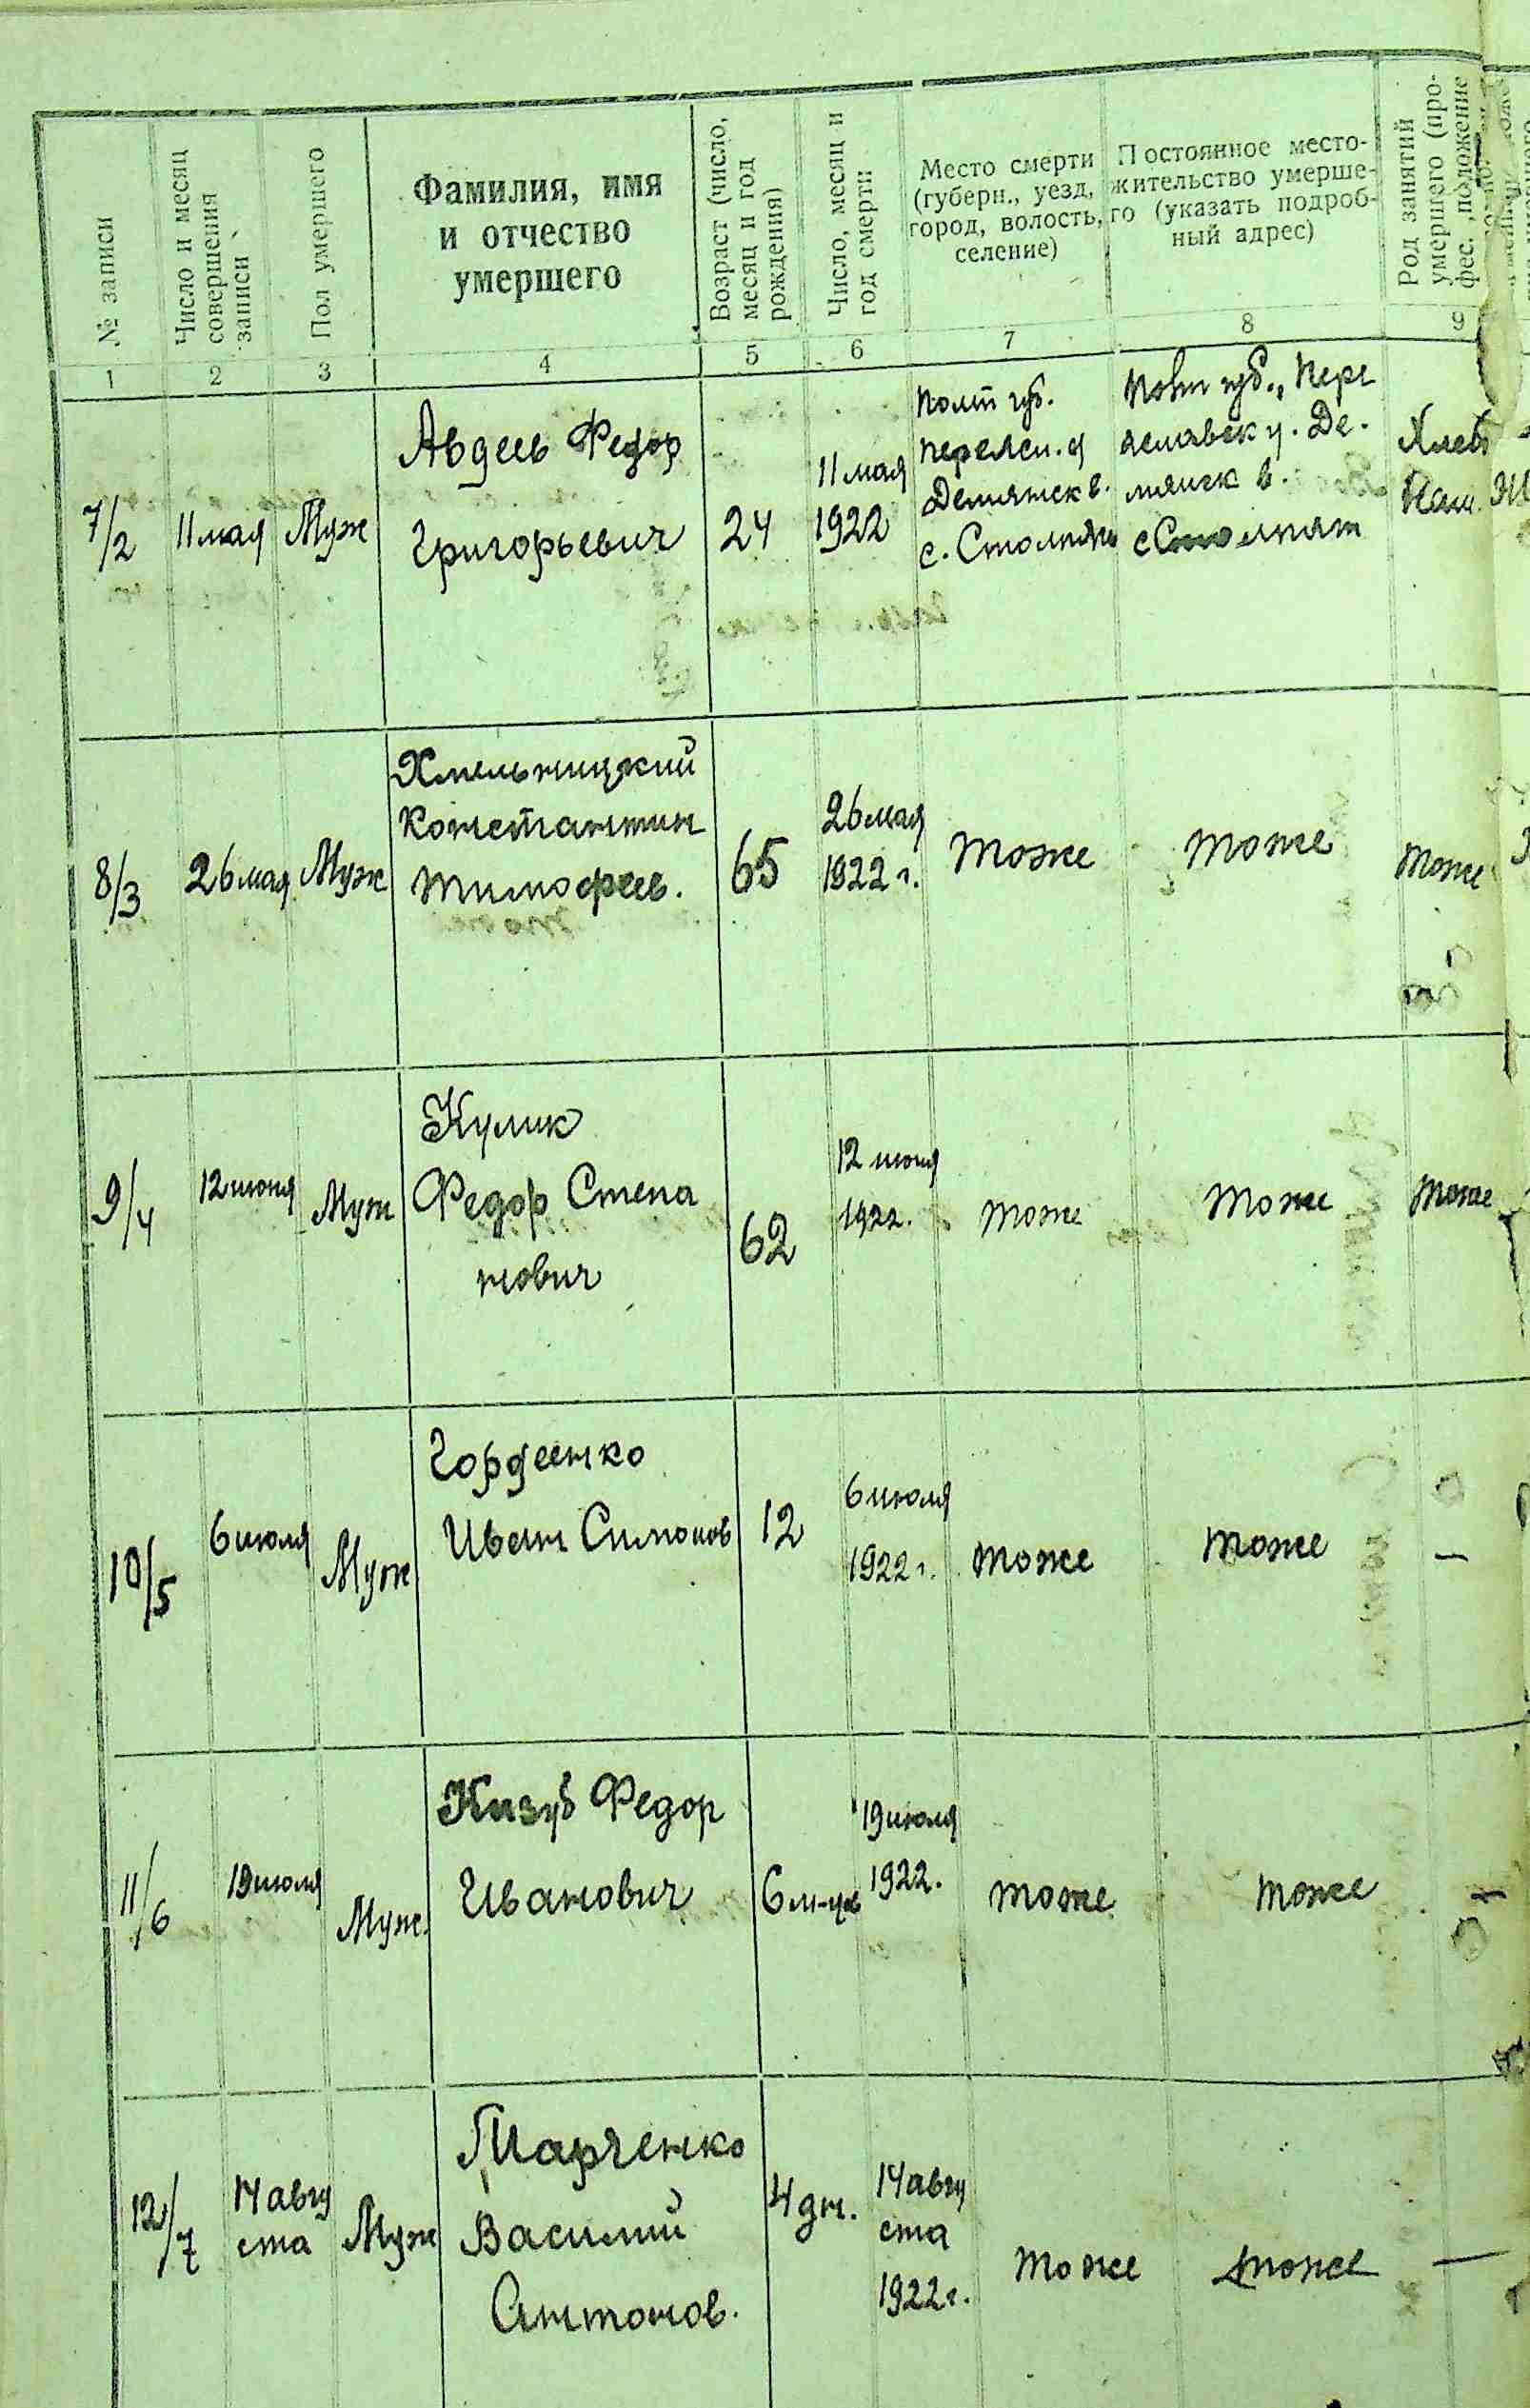 № записи
Число и месяц
совершения
записи
Пол умершего
Фамилия, имя
и отчество
умершего
Возраст (число,
месяц и год
рождения)
Число, месяц и
год смерти
Место смерти
(губерн., уезд,
город, волость,
селение)
Постоянное место-
жительство умерше-
го (указать подроб-
ный адрес)
Род занятий
умершего (про-
фес., положение
1
2
3
4
5
6
7
8
9
7/2
11 мая
Муж
Авдеев Федор
Григорьевич
24
11 мая
1922
Полт губ.
Переясл. у
Демянск в.
с. Столпяги
Полт губ., Пере
яславск у. Де.
мянск в.
с Столпяг
Хлеб
Паш
8/3
26 мая
Муж
Хмельницкий
Константин
Тимофеев.
65
26 мая
1922 г.
тоже
тоже
тоже
9/4
12 июня
Муж
Кулик
Федор Степа
нович
62
12 июня
1922.
тоже
тоже
тоже
10/5
6 июля
Муж
Гордеенко
Иван Симонов
12
6 июля
1922 г.
тоже
тоже
—
11/6
19 июля
Муж.
Кизуб Федор
Иванович
6 м-цев
19 июля
1922.
тоже
тоже
—
12/7
14 авгу
ста
Муж
Марченко
Василий
Антонов.
4 дн.
14 авгу
ста
1922 г.
тоже
тоже
—